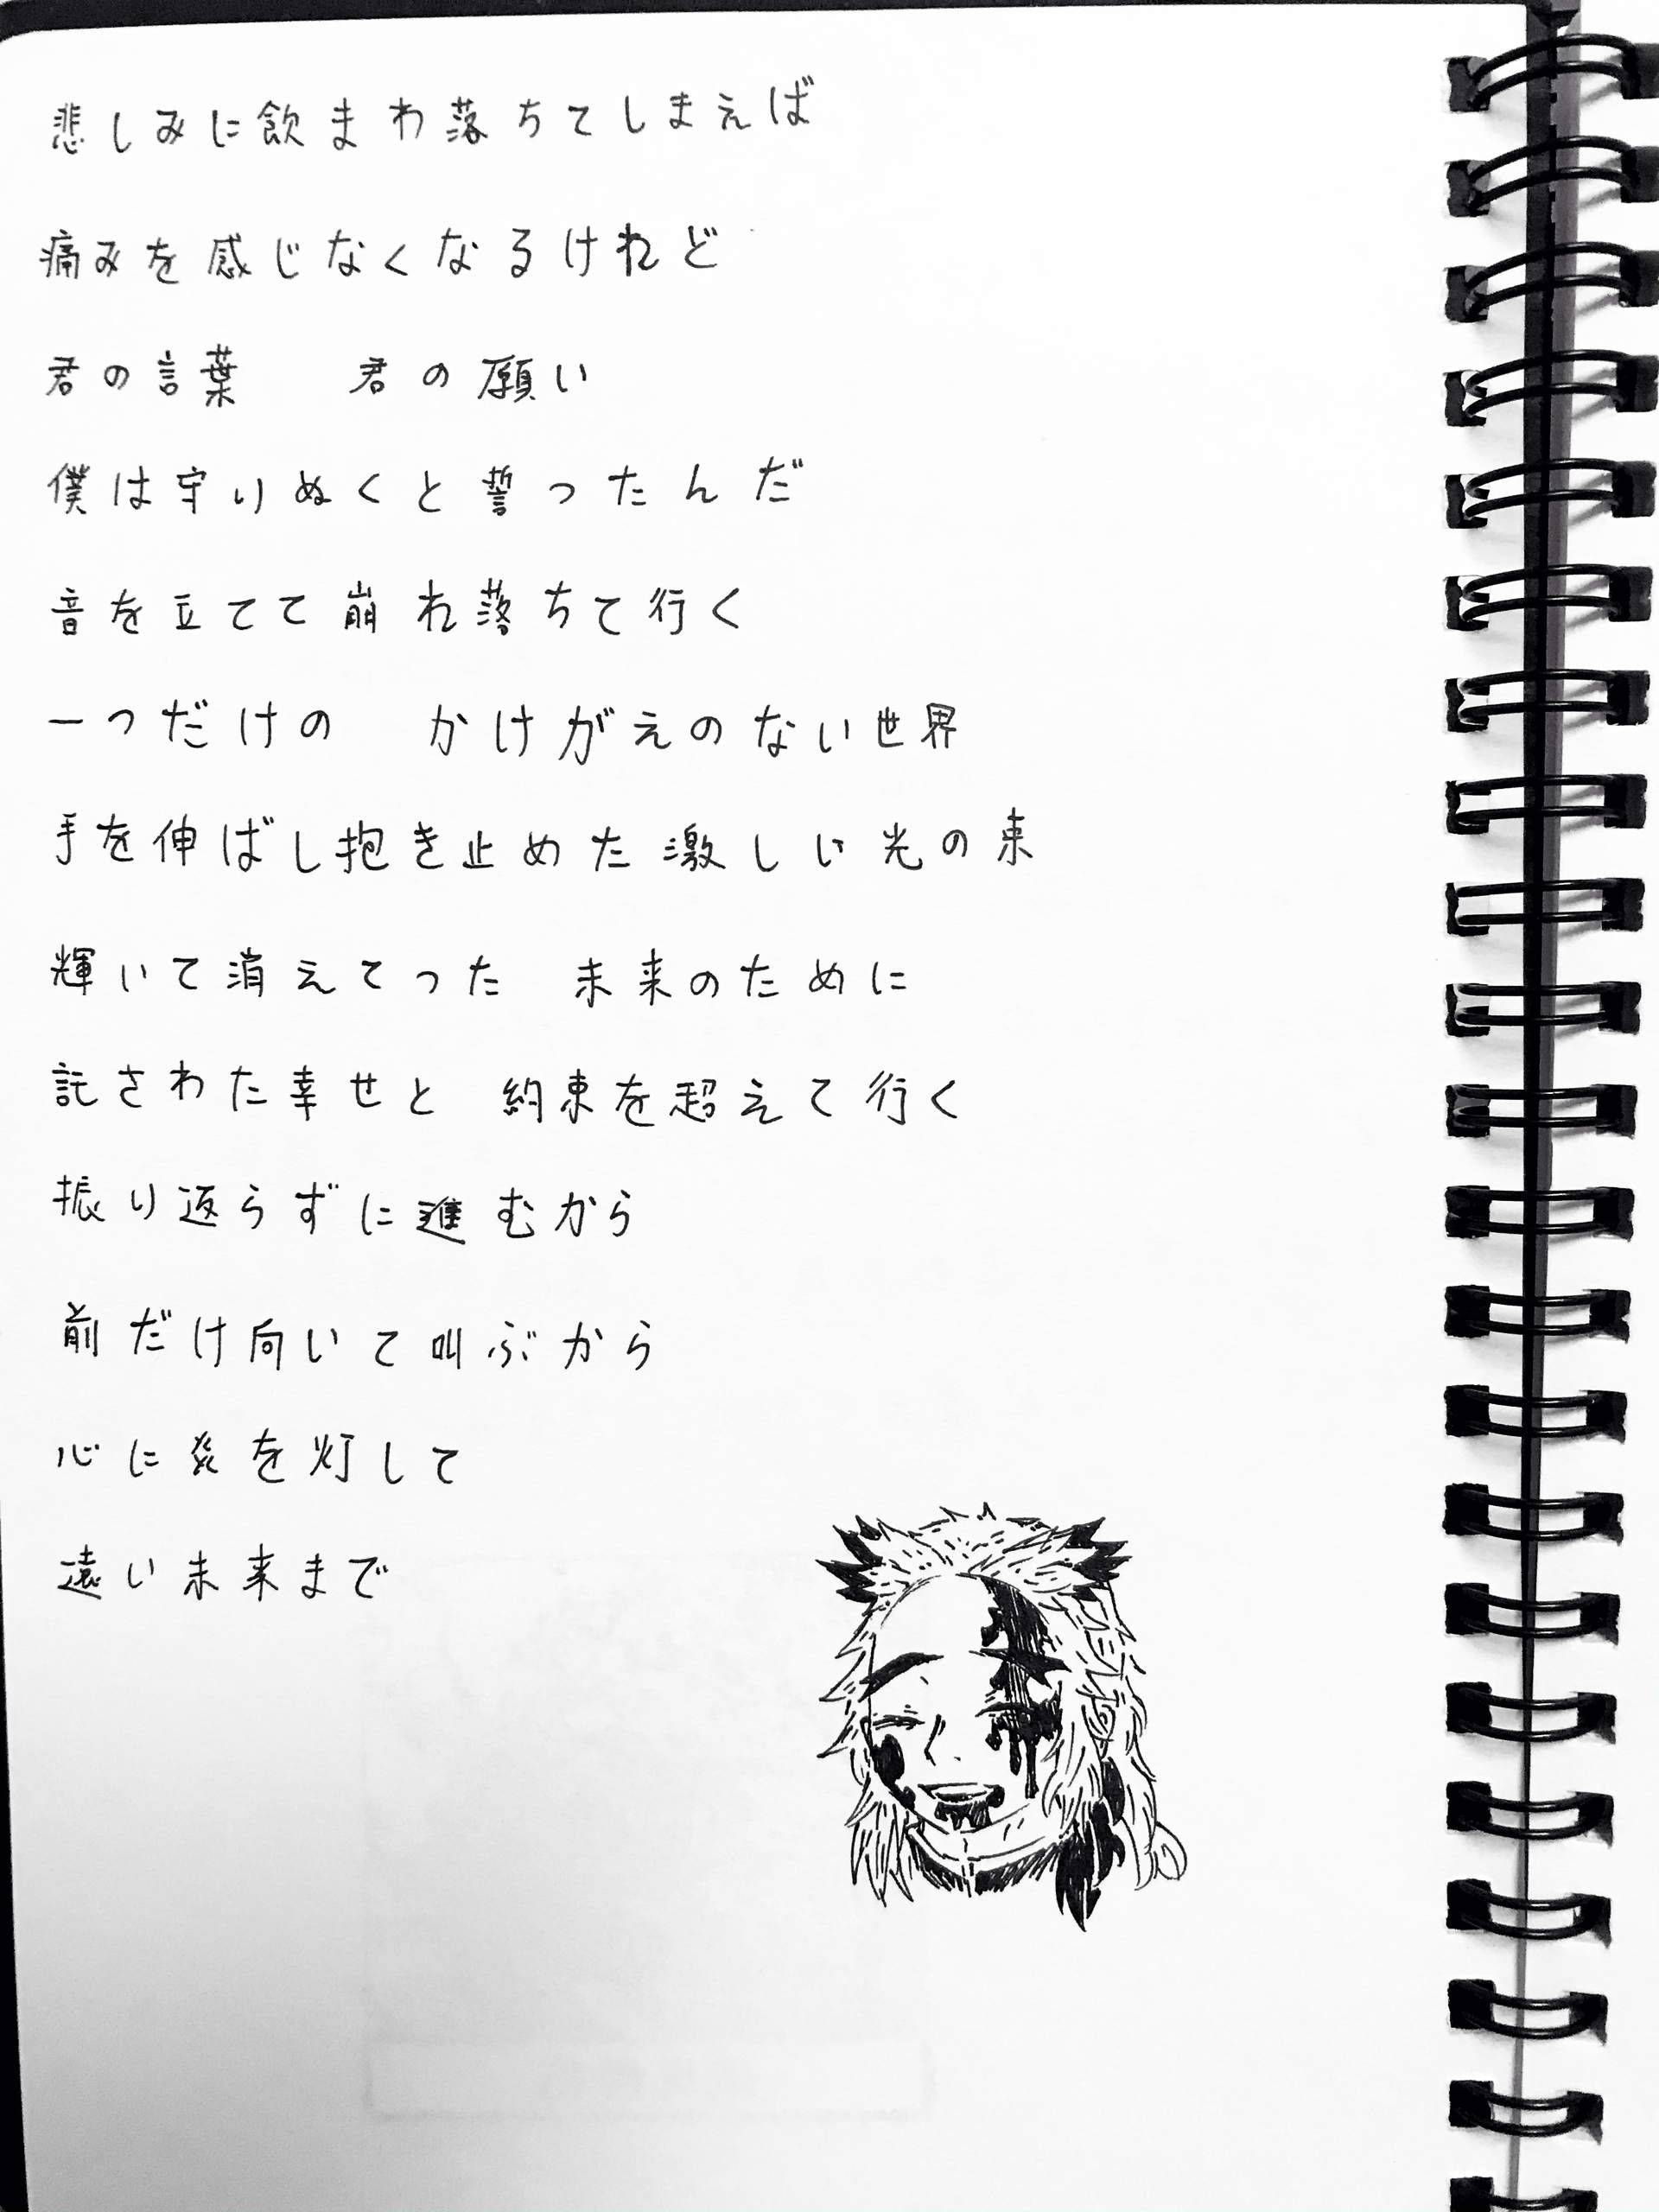 悲しみに飲まわ落ちてしまえば
痛みを感じなくなるけれど
君の言葉　君の願い
僕は守りぬくと誓ったんだ
音を立てて崩れ落ちて行く
一つだけの　かけがえのない世界
手を伸ばし抱き止めた激しい光の束
輝いて消えてった　未来のために
託さわた幸せと　約束を超えて行く
振り返らずに進むから
前だけ向いて叫ぶから
心に炎を灯して
遠い未来まで